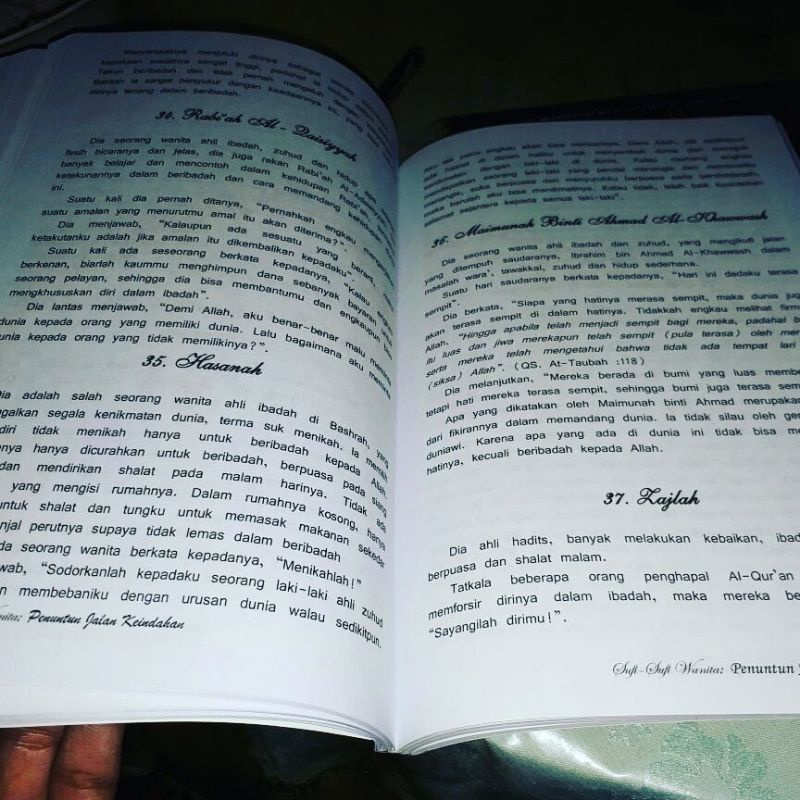 Masyarakatnya menjuluki dirinya sebagai
kepekaan sosialnya sangat tinggi, padahal ia
Tekun beribadah dan tidak pernah mengeluh
Bahkan ia sangat bersyukur dengan keadaannya
dirinya tenang dalam beribadah.
34. Rabi'ah Al - Qaisiyyah
Dia seorang wanita ahli ibadah, zuhud dan hidup
fasih bicaranya dan jelas, dia juga rekan Rabi'ah Al-
banyak belajar dan mencontoh dalam kehidupan Rabi'ah
ketekunannya dalam beribadah dan cara memandang kehidupan
ini.
Suatu kali dia pernah ditanya, "Pernahkah engkau
suatu amalan yang menurutmu amal itu akan diterima?".
Dia menjawab, "Kalaupun ada sesuatu yang berarti,
ketakutanku adalah jika amalan itu dikembalikan kepadaku".
Suatu kali ada seseorang berkata kepadanya, "Kalau engkau
berkenan, biarlah kaummu menghimpun dana sebanyak bayaran
seorang pelayan, sehingga dia bisa membantumu dan engkaupun bisa
mengkhususkan diri dalam ibadah".
Dia lantas menjawab, "Demi Allah, aku benar-benar malu meminta
dunia kepada orang yang memiliki dunia. Lalu bagaimana aku meminta
unia kepada orang yang tidak memilikinya?".
35. Hasanah
Dia adalah salah seorang wanita ahli ibadah di Bashrah, yang
ggalkan segala kenikmatan dunia, terma suk menikah. Ia memilih
diri tidak menikah hanya untuk beribadah kepada Allah.
nya hanya dicurahkan untuk beribadah, berpuasa pada siang
dan mendirikan shalat pada malam harinya. Tidak ada
yang mengisi rumahnya. Dalam rumahnya kosong, hanya
untuk shalat dan tungku untuk memasak makanan sekedar
njal perutnya supaya tidak lemas dalam beribadah
da seorang wanita berkata kepadanya, "Menikahlah!"
wab, "Sodorkanlah kepadaku seorang laki-laki ahli zuhud
n membebaniku dengan urusan dunia walau sedikitpun.
nita; Penuntun Jalan Keindahan
Aku tak yakin engkau akan bisa menkarinya. Demi Allah, tak sedikitpun
dunia dan mengais
kenikmatan dengan laki-laki di dunia. Kalau memang engkau
mendapatkan seorang laki-laki yang pandai menangis dan
karena suka berpuasa dan menyuruhku berpuasa serta bershadaqah,
maka barulah aku bisa menikmatinya. Kalau tidak, lebih baik kuucapkan
selamat sejahtera kepada semua laki-laki".
36. Maimunah Binti Ahmad Al-Khawwash
Dia seorang wanita ahli ibadah dan zuhud, yang mengikuti jalan
yang ditempuh saudaranya, Ibrahim bin Ahmad Al-Khawwash dalam
masalah wara', tawakkal, zuhud dan hidup sederhana.
Suatu hari saudaranya berkata kepadanya, "Hari ini dadaku terasa
sempit".
Dia berkata, "Siapa yang hatinya merasa sempit, maka dunia jug
akan terasa sempit di dalam hatinya. Tidakkah engkau melihat firma
Allah, "Hingga apabila telah menjadi sempit bagi mereka, padahal b
itu luas dan jiwa merekapun telah sempit (pula terasa) oleh mer
serta mereka telah mengetahui bahwa tidak ada tempat lari
(siksa) Allah". (QS. At-Taubah :118)
Dia melanjutkan, "Mereka berada di bumi yang luas membe
tetapi hati mereka terasa sempit, sehingga bumi juga terasa sem
Apa yang dikatakan oleh Maimunah binti Ahmad merupakan
dari fikirannya dalam memandang dunia. Ia tidak silau oleh ge
duniawi. Karena apa yang ada di dunia ini tidak bisa me
hatinya, kecuali beribadah kepada Allah.
37. Zajlah
Dia ahli hadits, banyak melakukan kebaikan, ibad
berpuasa dan shalat malam.
Tatkala beberapa orang penghapal Al-Qur'an
memforsir dirinya dalam ibadah, maka mereka be
"Sayangilah dirimu!".
Sufi-Sufi Wanita; Penuntun J